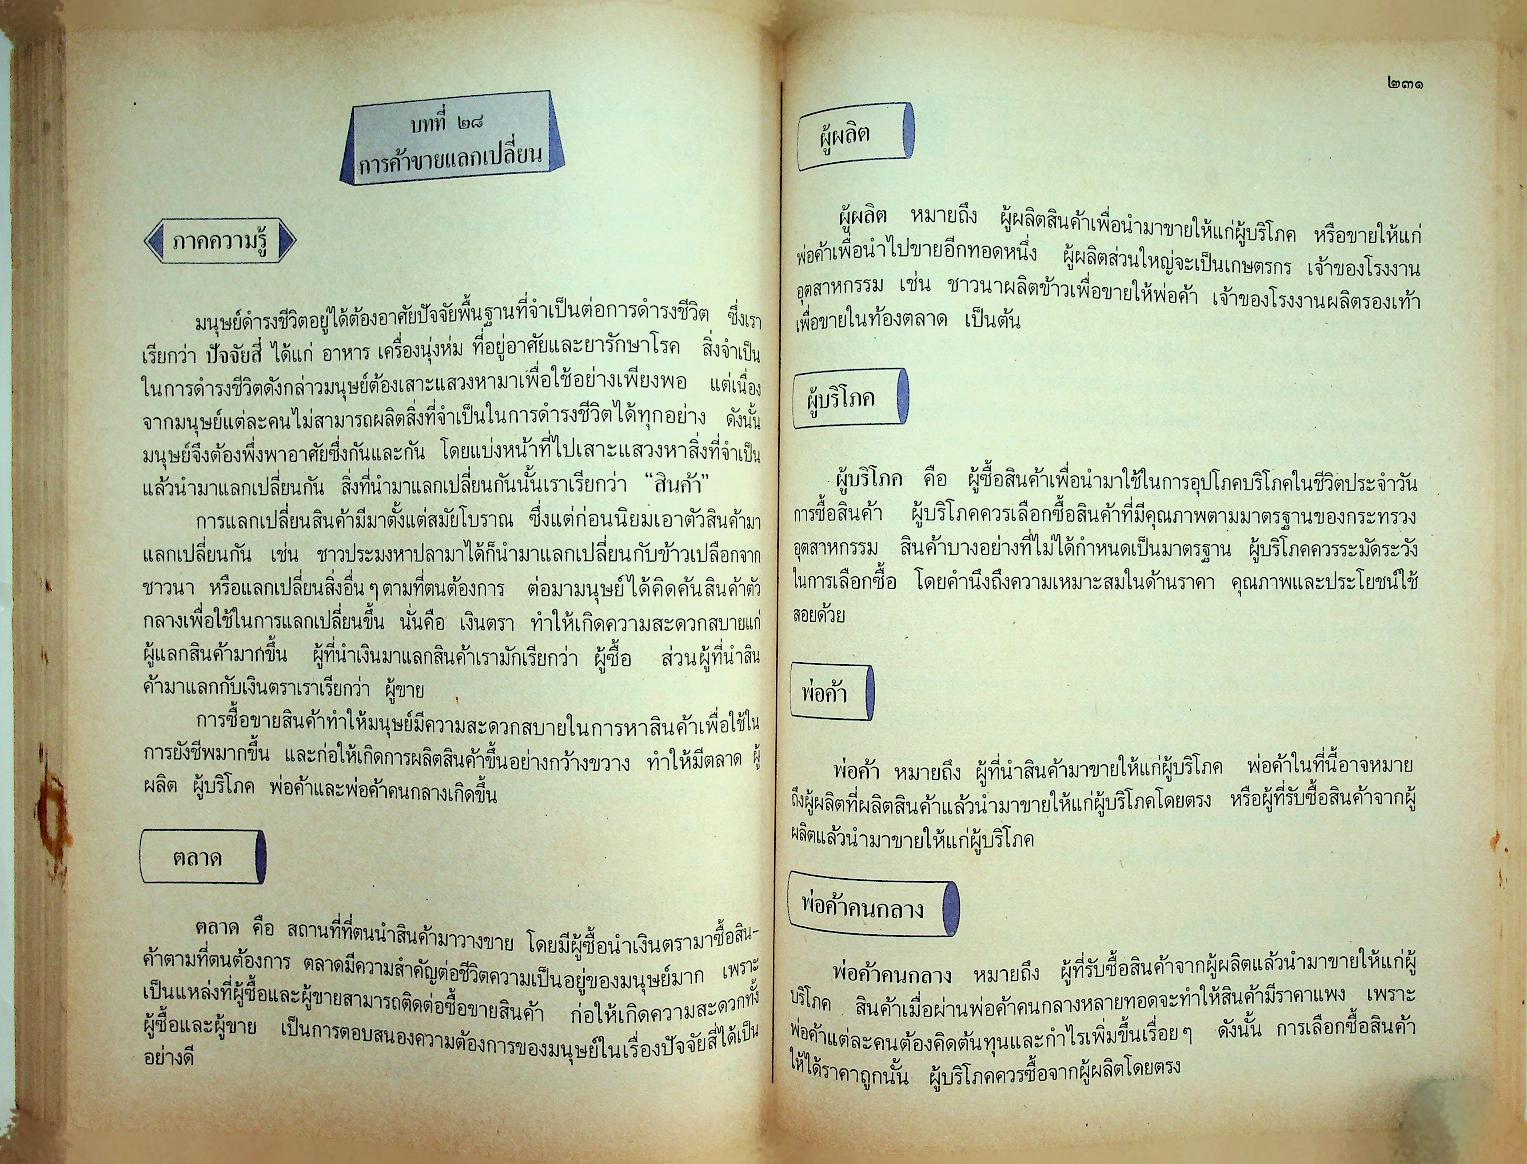 บทที่ ๒๘
การค้าขายแลกเปลี่ยน
ภาคความรู้
มนุษย์ดำรงชีวิตอยู่ได้ต้องอาศัยปัจจัยพื้นฐานที่จำเป็นต่อการดำรงชีวิต ซึ่งเรา
เรียกว่า ปัจจัยสี่ ได้แก่ อาหาร เครื่องนุ่งห่ม ที่อยู่อาศัยและยารักษาโรค สิ่งจำเป็น
ในการดำรงชีวิตดังกล่าวมนุษย์ต้องเสาะแสวงหามาเพื่อใช้อย่างเพียงพอ แต่เนื่อง
จากมนุษย์แต่ละคนไม่สามารถผลิตสิ่งที่จำเป็นในการดำรงชีวิตได้ทุกอย่าง ดังนั้น
มนุษย์จึงต้องพึ่งพาอาศัยซึ่งกันและกัน โดยแบ่งหน้าที่ไปเสาะแสวงหาสิ่งที่จำเป็น
แล้วนำมาแลกเปลี่ยนกัน สิ่งที่นำมาแลกเปลี่ยนกันนั้นเราเรียกว่า “สินค้า”
การแลกเปลี่ยนสินค้ามีมาตั้งแต่สมัยโบราณ ซึ่งแต่ก่อนนิยมเอาตัวสินค้ามา
แลกเปลี่ยนกัน เช่น ชาวประมงหาปลามาได้ก็นำมาแลกเปลี่ยนกับข้าวเปลือกจาก
ชาวนา หรือแลกเปลี่ยนสิ่งอื่น ๆ ตามที่ตนต้องการ ต่อมามนุษย์ได้คิดค้นสินค้าตัว
กลางเพื่อใช้ในการแลกเปลี่ยนขึ้น นั่นคือ เงินตรา ทำให้เกิดความสะดวกสบายแก่
ผู้แลกสินค้ามากขึ้น ผู้ที่นำเงินมาแลกสินค้าเรามักเรียกว่า ผู้ซื้อ ส่วนผู้ที่นำสิน
ค้ามาแลกกับเงินตราเราเรียกว่า ผู้ขาย
การซื้อขายสินค้าทำให้มนุษย์มีความสะดวกสบายในการหาสินค้าเพื่อใช้ใน
การยังชีพมากขึ้น และก่อให้เกิดการผลิตสินค้าขึ้นอย่างกว้างขวาง ทำให้มีตลาด ผู้
ผลิต ผู้บริโภค พ่อค้าและพ่อค้าคนกลางเกิดขึ้น
ตลาด
ตลาด คือ สถานที่ที่ตนนำสินค้ามาวางขาย โดยมีผู้ซื้อนำเงินตรามาซื้อสิน-
ค้าตามที่ตนต้องการ ตลาดมีความสำคัญต่อชีวิตความเป็นอยู่ของมนุษย์มาก เพราะ
เป็นแหล่งที่ผู้ซื้อและผู้ขายสามารถติดต่อซื้อขายสินค้า ก่อให้เกิดความสะดวกทั้ง
ผู้ซื้อและผู้ขาย เป็นการตอบสนองความต้องการของมนุษย์ในเรื่องปัจจัยสี่ได้เป็น
อย่างดี
๒๓๑
ผู้ผลิต
ผู้ผลิต หมายถึง ผู้ผลิตสินค้าเพื่อนำมาขายให้แก่ผู้บริโภค หรือขายให้แก่
พ่อค้าเพื่อนำไปขายอีกทอดหนึ่ง ผู้ผลิตส่วนใหญ่จะเป็นเกษตรกร เจ้าของโรงงาน
อุตสาหกรรม เช่น ชาวนาผลิตข้าวเพื่อขายให้พ่อค้า เจ้าของโรงงานผลิตรองเท้า
เพื่อขายในท้องตลาด เป็นต้น
ผู้บริโภค
ผู้บริโภค คือ ผู้ซื้อสินค้าเพื่อนำมาใช้ในการอุปโภคบริโภคในชีวิตประจำวัน
การซื้อสินค้า ผู้บริโภคควรเลือกซื้อสินค้าที่มีคุณภาพตามมาตรฐานของกระทรวง
อุตสาหกรรม สินค้าบางอย่างที่ไม่ได้กำหนดเป็นมาตรฐาน ผู้บริโภคควรระมัดระวัง
ในการเลือกซื้อ โดยคำนึงถึงความเหมาะสมในด้านราคา คุณภาพและประโยชน์ใช้
สอยด้วย
พ่อค้า
พ่อค้า หมายถึง ผู้ที่นำสินค้ามาขายให้แก่ผู้บริโภค พ่อค้าในที่นี้อาจหมาย
ถึงผู้ผลิตที่ผลิตสินค้าแล้วนำมาขายให้แก่ผู้บริโภคโดยตรง หรือผู้ที่รับซื้อสินค้าจากผู้
ผลิตแล้วนำมาขายให้แก่ผู้บริโภค
พ่อค้าคนกลาง
พ่อค้าคนกลาง หมายถึง ผู้ที่รับซื้อสินค้าจากผู้ผลิตแล้วนำมาขายให้แก่ผู้
บริโภค สินค้าเมื่อผ่านพ่อค้าคนกลางหลายทอดจะทำให้สินค้ามีราคาแพง เพราะ
พ่อค้าแต่ละคนต้องคิดต้นทุนและกำไรเพิ่มขึ้นเรื่อย ๆ ดังนั้น การเลือกซื้อสินค้า
ให้ได้ราคาถูกนั้น ผู้บริโภคควรซื้อจากผู้ผลิตโดยตรง